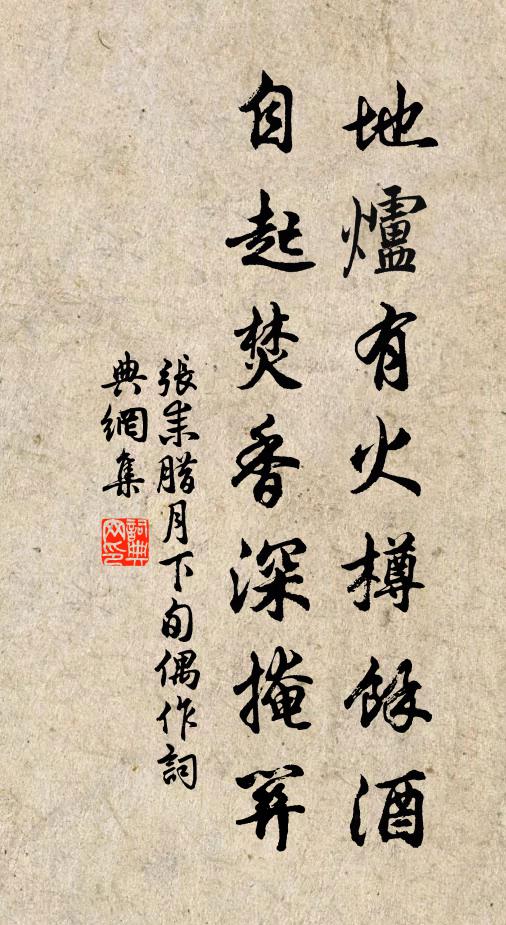 地爐有火樽餘酒
自起焚香深掩關
張耒臘月下旬偶作詞
典網集
詞典
网印